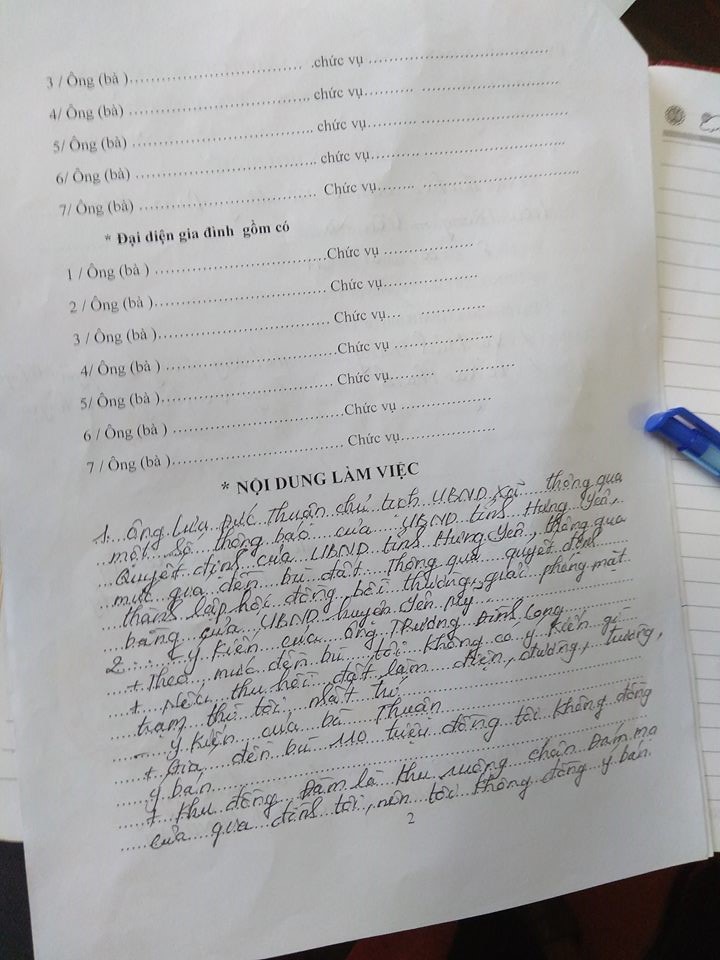 3 / Ông (bà )…………………………… .chức vụ ……………………………
4/ Ông (bà) …………………………….. chức vụ……… ……………………
5/ Ông (bà) …………………………….. chức vụ……… ……………………
6/ Ông (bà) …………………………….. chức vụ……… ……………………
7/ Ông (bà) ……………………………. Chức vụ……. ……………………..
* Đại diện gia đình gồm có
1 / Ông (bà ) …………………………….Chức vụ ……………
2 / Ông (bà )……………………………. Chức vụ………………
3 / Ông (bà )……………………………. Chức vụ… …………
4/ Ông (bà ) …………………………….Chức vụ ………………
5/ Ông (bà )……………………………. Chức vụ……… …………
6 / Ông (bà ) …………………………….Chức vụ ………………
7 / Ông (bà )……………………………. Chức vụ………………
* NỘI DUNG LÀM VIỆC
1. ông Lưu Đức Thuận chủ tịch UBND xã thông qua
một số thông báo của UBND tỉnh Hưng Yên,
Quyết định của UBND tỉnh Hưng Yên, thông qua
mức giá đền bù đất. Thông qua quyết định
thành lập hội đồng bồi thường, giải phóng mặt
bằng của UBND huyện Yên Mỹ.
2. * ý kiến của ông Trương Đình Long
+ Theo mức đền bù tôi không có ý kiến gì
+ Nếu thu hồi đất làm điện, đường, trường,
trạm thì tôi nhất trí
ý kiến của bà Thuận
+ Giá đền bù 110 triệu đồng tôi không đồng
ý bán
+ Khu đồng Đầm là khu ruộng chân
của gia đình tôi, nên tôi không đồng ý bán.
2